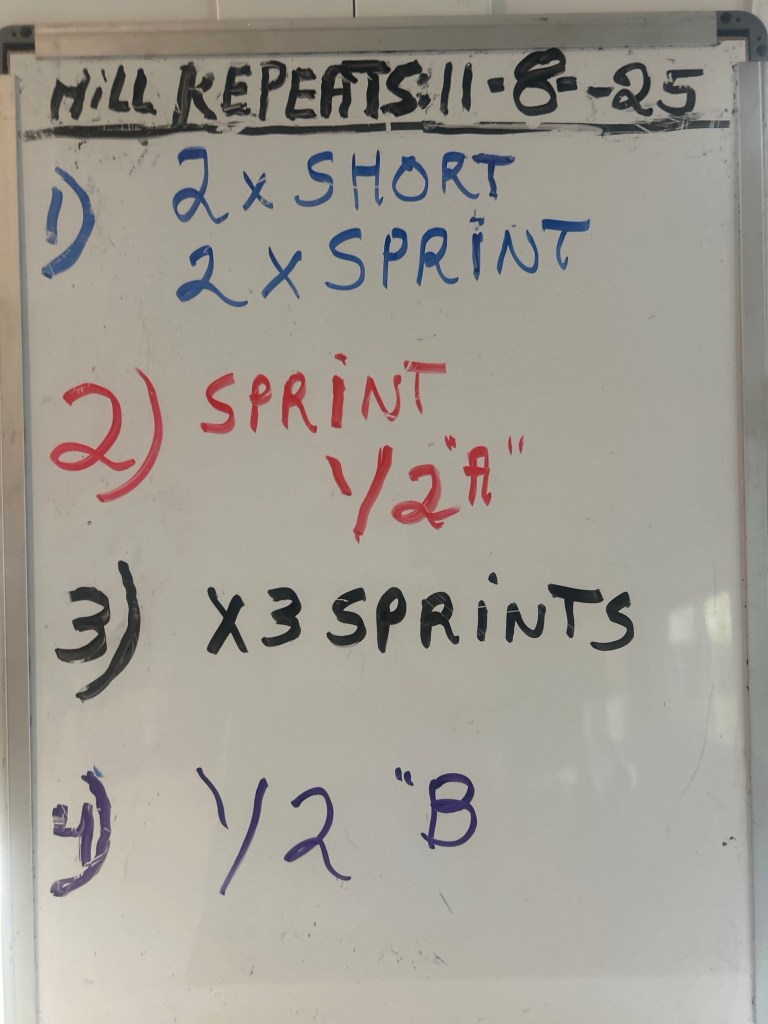 HiLL REPEATS:11-8--25
1) 2 x SHORT
2 x SPRiNT
2) SPRiNT
1/2 "A"
3) X3 SPRiNTS
4) 1/2 "B